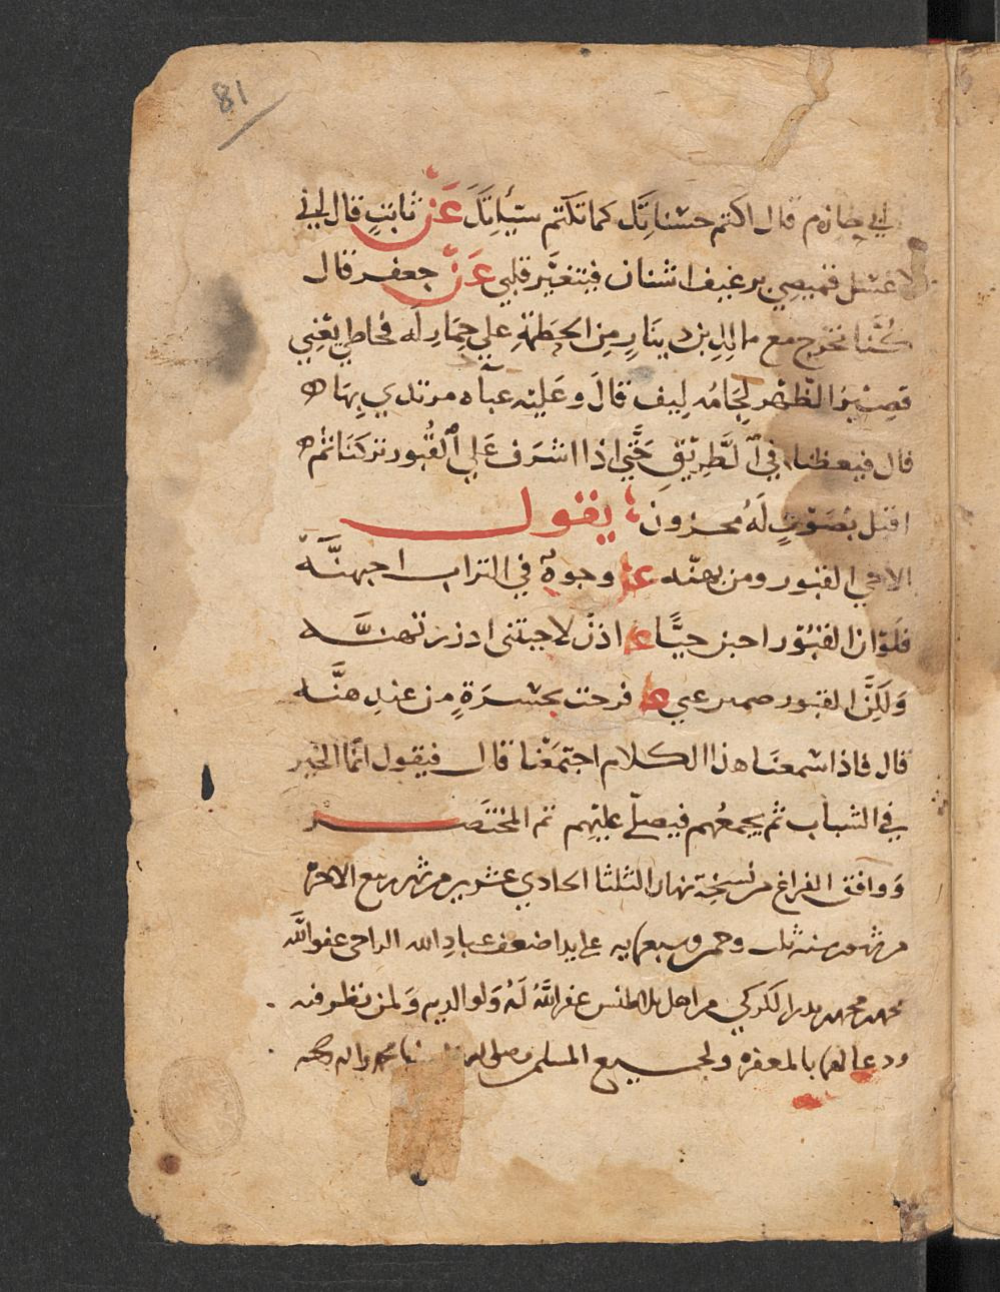 81
لي حازم قال اكتم حسناتك كما تكتم سيأتك عن ثابت قال اني
لاغسل قميصي برغيف اشنان فيتغير قلبي عن جعفر قال
كنا نخرج مع مالك بن دينار من الحطمة علي حمار له فحاطي يعني
قصير الظهر لجامه ليف قال وعليه عباه مرتدي بها ه
قال فيعظنا في الطريق حتي اذا اشرف علي القبور تركنا ثم ه
اقبل بصوت له محزون يقول
الا حي القبور ومن بهنه وجوه في التراب اجبهنه
فلو ان القبور اجبن حيا اذن لاجبتني اذ زرتهنه
ولكن القبور صمتن عني فرحت بحسرة من عند هنه
قال فاذا سمعنا هذا الكلام اجتمعنا قال فيقول انما الخير
في الشباب ثم يجمعهم فيصلي عليهم تم المختصر
ووافق الفراغ من نسخة نهار الثلثا الحادي عشرين من شهر ربيع الاخر
من شهور سنه ثلث وخمس وسبعمايه علي يد اضعف عباد الله الراجي عفو الله
محمد محمد بدر الكركي من اهل بلاطنس غفر الله له ولوالديه ولمن نظر فيه
ودعا لهم بالمغفره ولجميع المسلمين وصلى الله محمد واله وصحبه